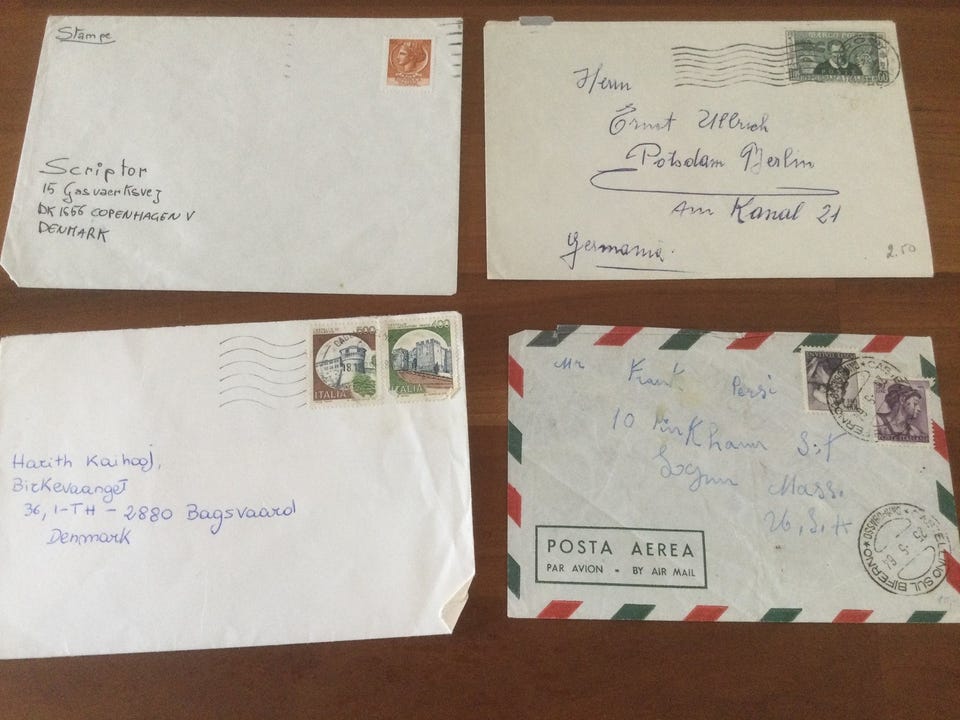 Stampe
Scriptor
15 Gasvaerksvej
DK 1656 COPENHAGEN V
DENMARK
MARCO POLO
Herrn
Ernst Ullrich
Potsdam Berlin
Am Kanal 21
Germania.
2.50
500
400
ITALIA
ITALIA
Harith Kaihooj,
Birkevaanget
36, 1-TH - 2880 Bagsvaard
Denmark
Mr Frank Persi
10 Pinkham S.t
Lynn Mass.
U.S.A
POSTA AEREA
PAR AVION - BY AIR MAIL
CASTELLINO SUL BIFERNO